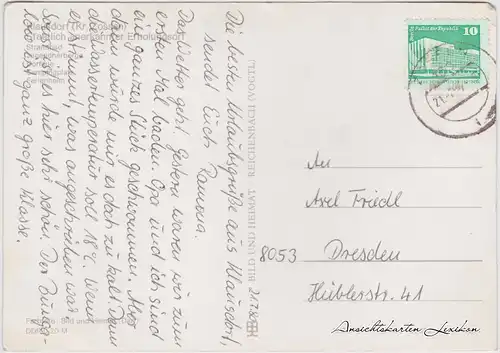 Klausdorf (Kr. Zossen)
Staatlich anerkannter Erholungsort
Die besten Urlaubsgrüße aus Klausdorf,
sendet Euch Ramona.
Das Wetter geht. Gestern waren wir zum
ersten Mal baden. Opa und ich sind
ein ganzes Stück geschwommen. Aber
dann wurde mir es doch zu kalt. Denn
die Wassertemperatur soll 18°C. Wenn
es stimmt, was angeschrieben war.
Sonst ist es hier sehr schön. Der Bunga-
low ist ganz große Klasse.
BILD UND HEIMAT REICHENBACH (VOGTL)
Palast der Republik
10
DDR
21.
An
Axel Friedl
8053 Dresden
Hüblerstr. 41
Ansichtskarten Lexikon